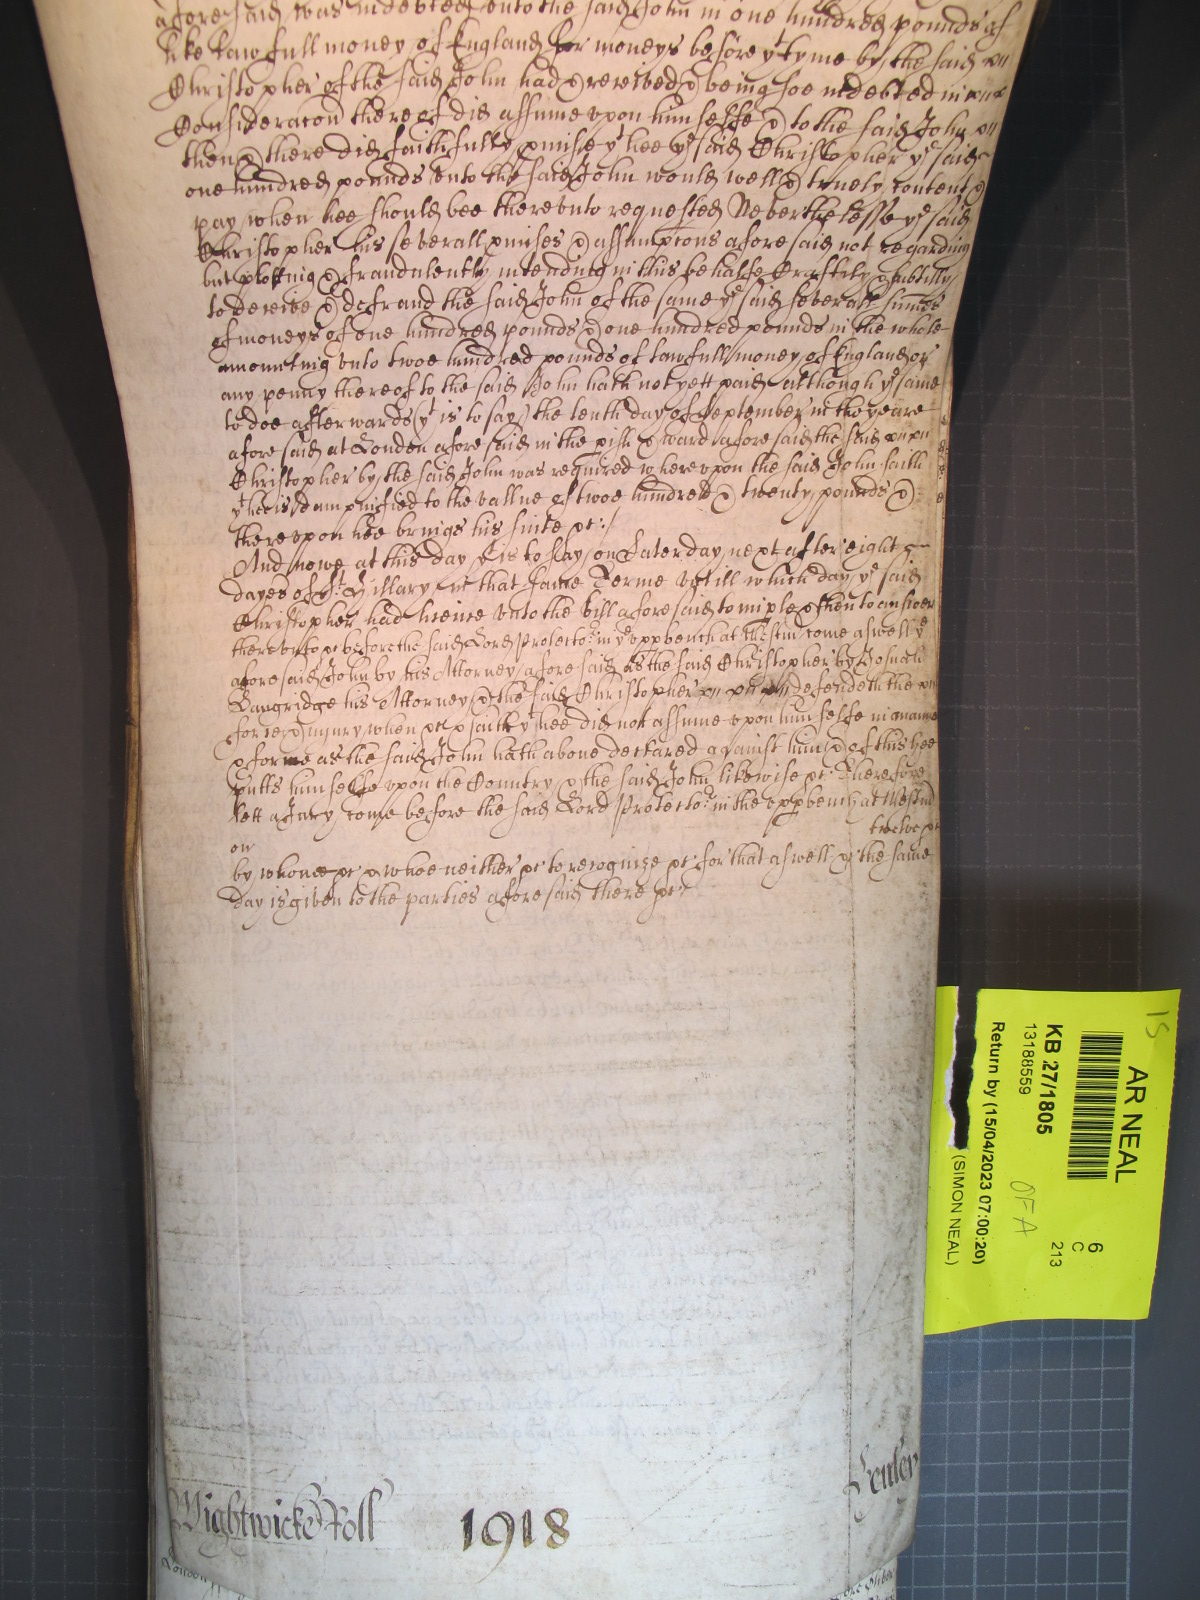 aforesaid was indebted unto the said John in one hundred pounds of
like lawfull money of England for moneys before yt tyme by the said
Christopher of the said John had & received & being soe indebted in
Consideracon thereof did assume upon himselfe & to the said John
then & there did faithfully pmise yt hee ye said Christopher ye said
one hundred pounds unto the said John would well & truely content &
pay when hee should bee thereunto requested Neverthelesse ye said
Christopher his severall pmises & assumptons aforesaid not regarding
but plotting & fraudulently intending in this behalfe Craftily & subtilly
to deceive & defraud the said John of the same ye said severall summes
of moneys of one hundred pounds & one hundred pounds in the whole
amounting unto twoe hundred pounds of lawfull money of England or
any penny thereof to the said John hath not yett paid although ye same
to doe afterwards (yt is to say) the tenth day of September in the yeare
aforesaid at London aforesaid in the pish & ward aforesaid the said
Christopher by the said John was required whereupon the said John saith
yt hee is dampnified to the vallue of twoe hundred & twenty pounds &
thereupon hee brings his suite &c:/
And nowe at this day yt is to say on Saterday next after eight
dayes of St. Hillary in that same Terme untill which day ye said
Christopher had licence unto the bill aforesaid to imple & then to answer
thereunto &c before the said Lord Protector in ye uppbench at Westm come aswell ye
aforesaid John by his Attorney aforesaid as the said Christopher by
Langridge his Attorney & the said Christopher defendeth the
force & injury when &c & saith yt hee did not assume upon himselfe in maner
& forme as the said John hath above declared against him & of this hee
putts himselfe upon the Country & the said John likewise &c Therefore
lett a Jury come before the said Lord Protector in the uppbench at Westm
on twelve &c
by whome &c & whoe neither &c to recognize &c for that aswell &c the same
day is given to the parties aforesaid there &c
Wightwicke Roll
1918
London
AR NEAL
KB 27/1805
13188559
Return by (15/04/2023 07:00:20)
(SIMON NEAL)
OFA
6
C
213
15